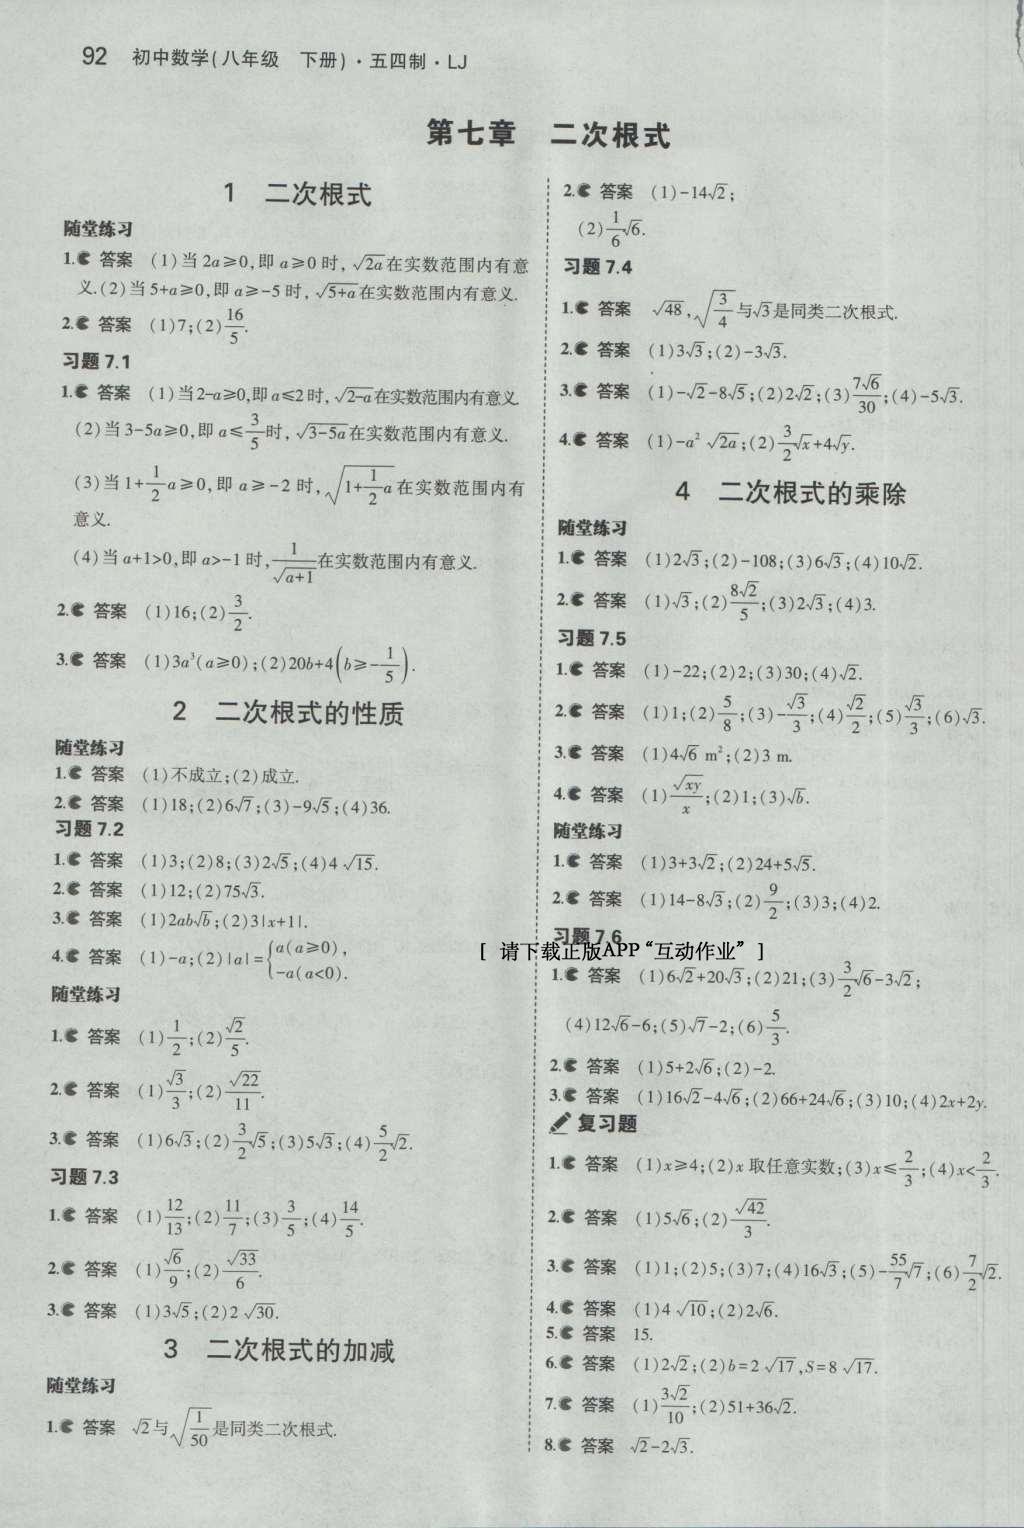 92 初中数学(八年级 下册)·五四制·LJ
第七章 二次根式
1 二次根式
随堂练习
1. 答案 (1)当 2a≥0,即 a≥0 时, √(2a)在实数范围内有意
义.(2)当 5+a≥0,即 a≥-5 时, √(5+a)在实数范围内有意义.
2. 答案 (1)7;(2)16/5.
习题 7.1
1. 答案 (1)当2-a≥0,即a≤2时, √(2-a)在实数范围内有意义.
(2)当 3-5a≥0,即 a≤3/5时, √(3-5a)在实数范围内有意义.
(3)当 1+1/2a≥0,即 a≥-2 时, √(1+1/2a)在实数范围内有
意义.
(4)当 a+1>0,即 a>-1 时, 1/√(a+1)在实数范围内有意义.
2. 答案 (1)16;(2)3/2.
3. 答案 (1)3a³(a≥0);(2)20b+4(b≥-1/5).
2 二次根式的性质
随堂练习
1. 答案 (1)不成立;(2)成立.
2. 答案 (1)18;(2)6√7;(3)-9√5;(4)36.
习题 7.2
1. 答案 (1)3;(2)8;(3)2√5;(4)4√15.
2. 答案 (1)12;(2)75√3.
3. 答案 (1)2ab√b;(2)3|x+1|.
4. 答案 (1)-a;(2)|a|={a(a≥0),
-a(a<0).
随堂练习
1. 答案 (1)1/2;(2)√2/5.
2. 答案 (1)√3/3;(2)√22/11.
3. 答案 (1)6√3;(2)3/2√5;(3)5√3;(4)5/2√2.
习题 7.3
1. 答案 (1)12/13;(2)11/7;(3)3/5;(4)14/5.
2. 答案 (1)√6/9;(2)√33/6.
3. 答案 (1)3√5;(2)2√30.
3 二次根式的加减
随堂练习
1. 答案 √2与√(1/50)是同类二次根式.
2. 答案 (1)-14√2;
(2)1/6√6.
习题 7.4
1. 答案 √48,√(3/4)与√3是同类二次根式.
2. 答案 (1)3√3;(2)-3√3.
3. 答案 (1)-√2-8√5;(2)2√2;(3)7√6/30;(4)-5√3.
4. 答案 (1)-a²√(2a);(2)3/2√x+4√y.
4 二次根式的乘除
随堂练习
1. 答案 (1)2√3;(2)-108;(3)6√3;(4)10√2.
2. 答案 (1)√3;(2)8√2/5;(3)2√3;(4)3.
习题 7.5
1. 答案 (1)-22;(2)2;(3)30;(4)√2.
2. 答案 (1)1;(2)5/8;(3)-√3/3;(4)√2/2;(5)√3/3;(6)√3.
3. 答案 (1)4√6 m²;(2)3 m.
4. 答案 (1)√(xy)/x;(2)1;(3)√b.
随堂练习
1. 答案 (1)3+3√2;(2)24+5√5.
2. 答案 (1)14-8√3;(2)9/2;(3)3;(4)2.
习题 7.6
[ 请下载正版APP“互动作业” ]
1. 答案 (1)6√2+20√3;(2)21;(3)3/2√6-3√2;
(4)12√6-6;(5)√7-2;(6)5/3.
2. 答案 (1)5+2√6;(2)-2.
3. 答案 (1)16√2-4√6;(2)66+24√6;(3)10;(4)2x+2y.
复习题
1. 答案 (1)x≥4;(2)x 取任意实数;(3)x≤2/3;(4)x<2/3.
2. 答案 (1)5√6;(2)√42/3.
3. 答案 (1)1;(2)5;(3)7;(4)16√3;(5)-55/7√7;(6)7/2√2.
4. 答案 (1)4√10;(2)2√6.
5. 答案 15.
6. 答案 (1)2√2;(2)b=2√17,S=8√17.
7. 答案 (1)3√2/10;(2)51+36√2.
8. 答案 √2-2√3.